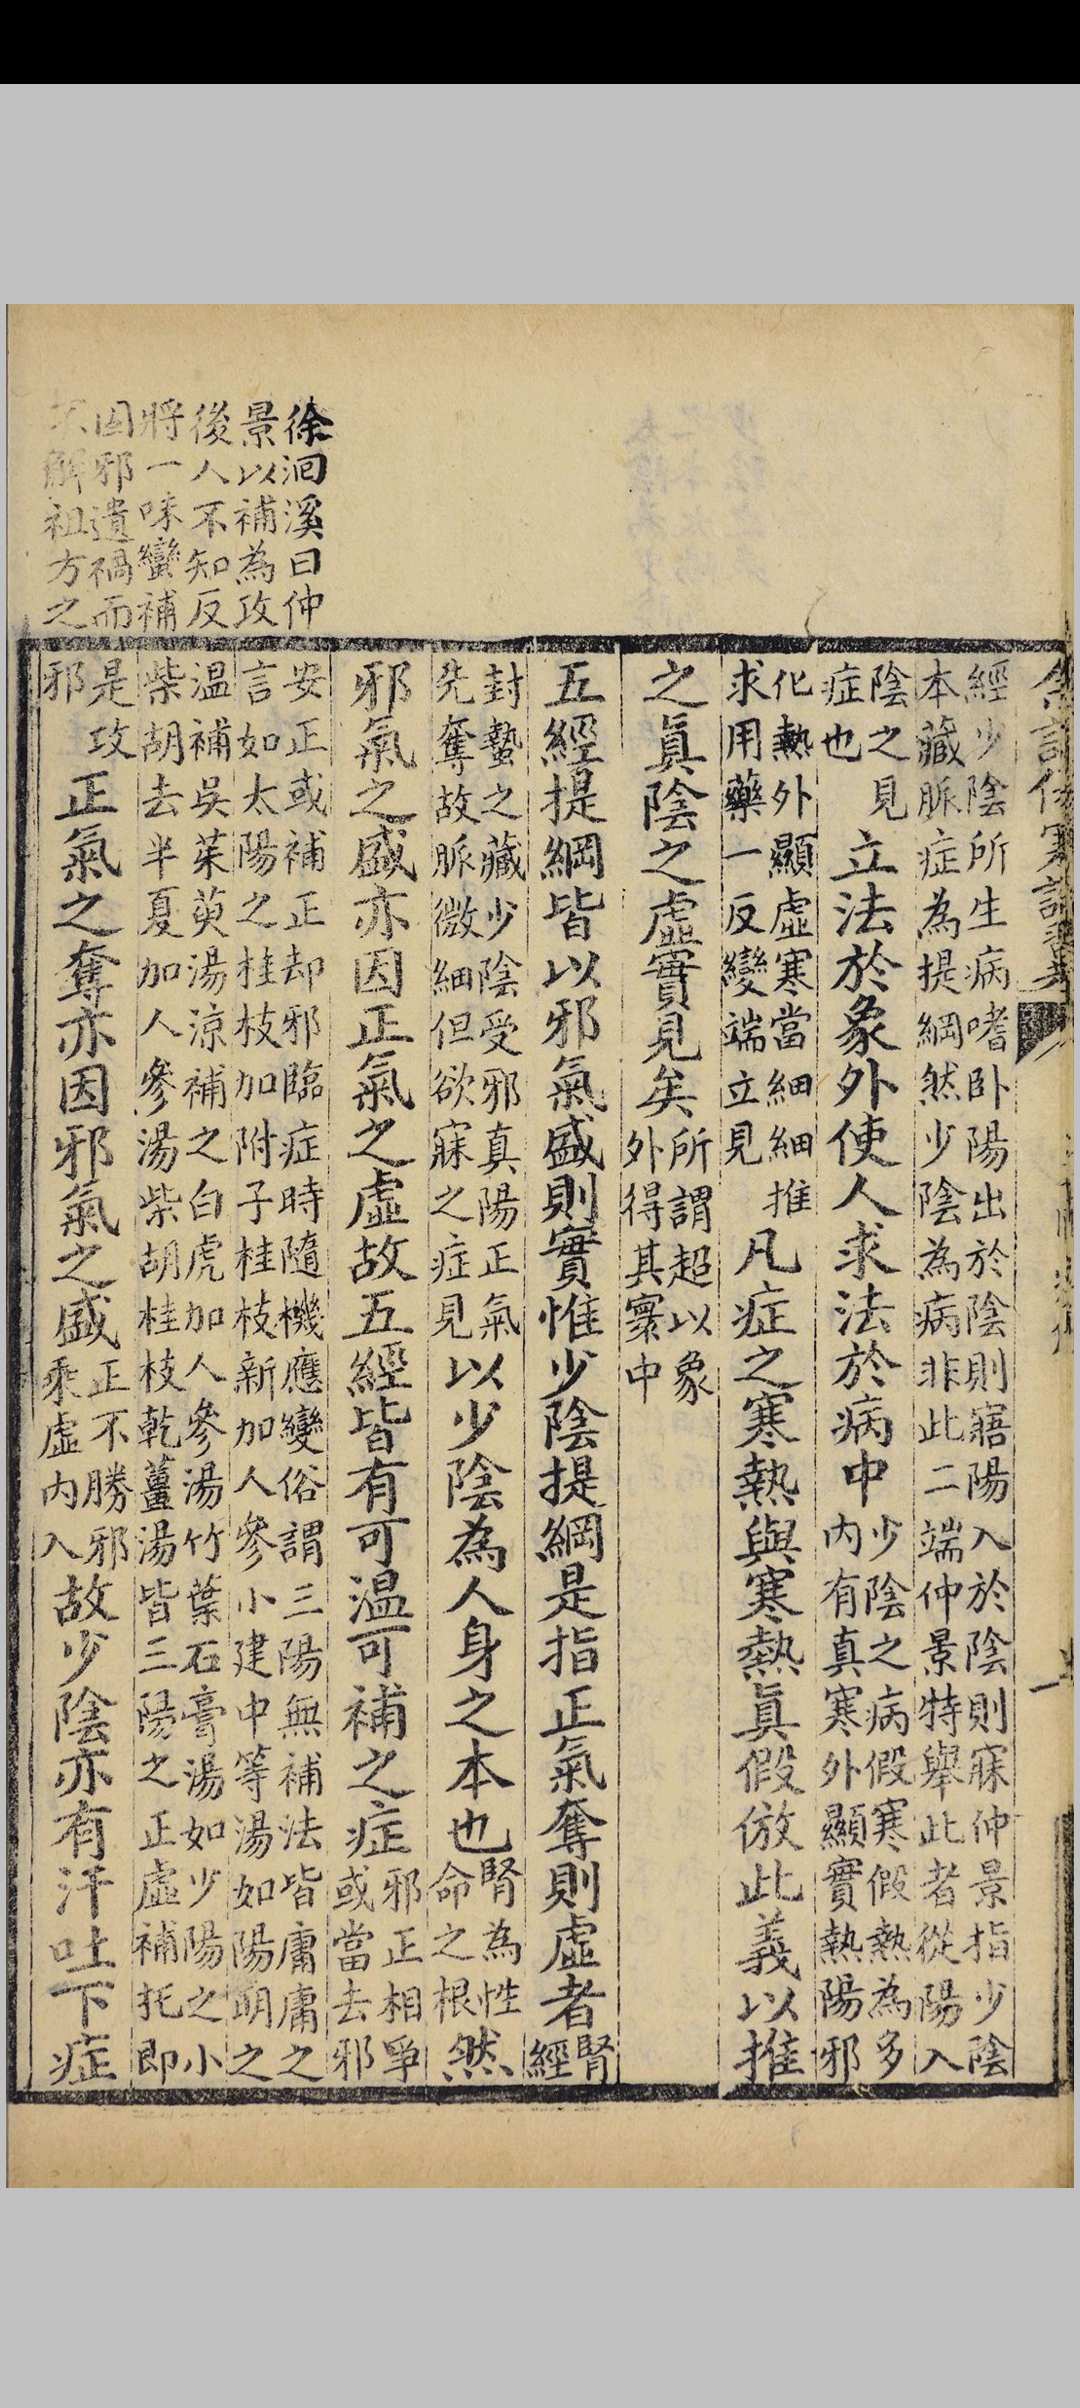 徐洄溪曰仲
景以補為攻
後人不知反
將一味蠻補
固邪遺禍而
不解祖方之
經少陰所生病嗜卧陽出於陰則寤陽入於陰則寐仲景指少陰
本藏脈症為提綱然少陰為病非此二端仲景特舉此者從陽入
陰之見
症也
立法於象外使人求法於病中
少陰之病假寒假熱為多
内有真寒外顯實熱陽邪
化熱外顯虛寒當細細推
求用藥一反變端立見
凡症之寒熱與寒熱眞假倣此義以推
之眞陰之虛實見矣
所謂超以象
外得其寰中
五經提綱皆以邪氣盛則實惟少陰提綱是指正氣奪則虛者
腎
經
封蟄之藏少陰受邪真陽正氣
先奪故脈微細但欲寐之症見
以少陰為人身之本也
腎為性
命之根
然
邪氣之盛亦因正氣之虛故五經皆有可温可補之症
邪正相爭
或當去邪
安正或補正却邪臨症時隨機應變俗謂三陽無補法皆庸庸之
言如太陽之桂枝加附子桂枝新加人參小建中等湯如陽明之
温補吳茱萸湯涼補之白虎加人參湯竹葉石膏湯如少陽之小
柴胡去半夏加人參湯柴胡桂枝乾薑湯皆三陽之正虛補托即
是攻
邪
正氣之奪亦因邪氣之盛
正不勝邪
乘虛内入
故少陰亦有汗吐下症